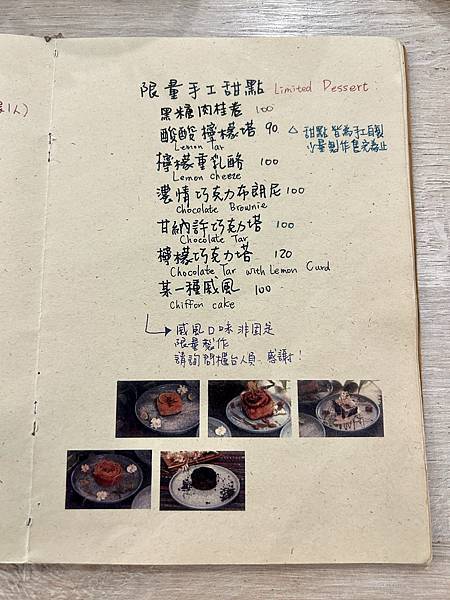 限量手工甜點 Limited Dessert
黑糖肉桂卷 100
酸酸檸檬塔 90
Lemon Tar
△ 甜點皆為手工自製
少量製作售完為止
檸檬重乳酪 100
Lemon cheeze
濃情巧克力布朗尼 100
Chocolate Brownie
甘納許巧克力塔 100
Chocolate Tar
檸檬巧克力塔 120
Chocolate Tar with Lemon Curd
某一種戚風 100
Chiffon cake
戚風口味非固定
限量製作
請詢問櫃台人員 感謝!
人)